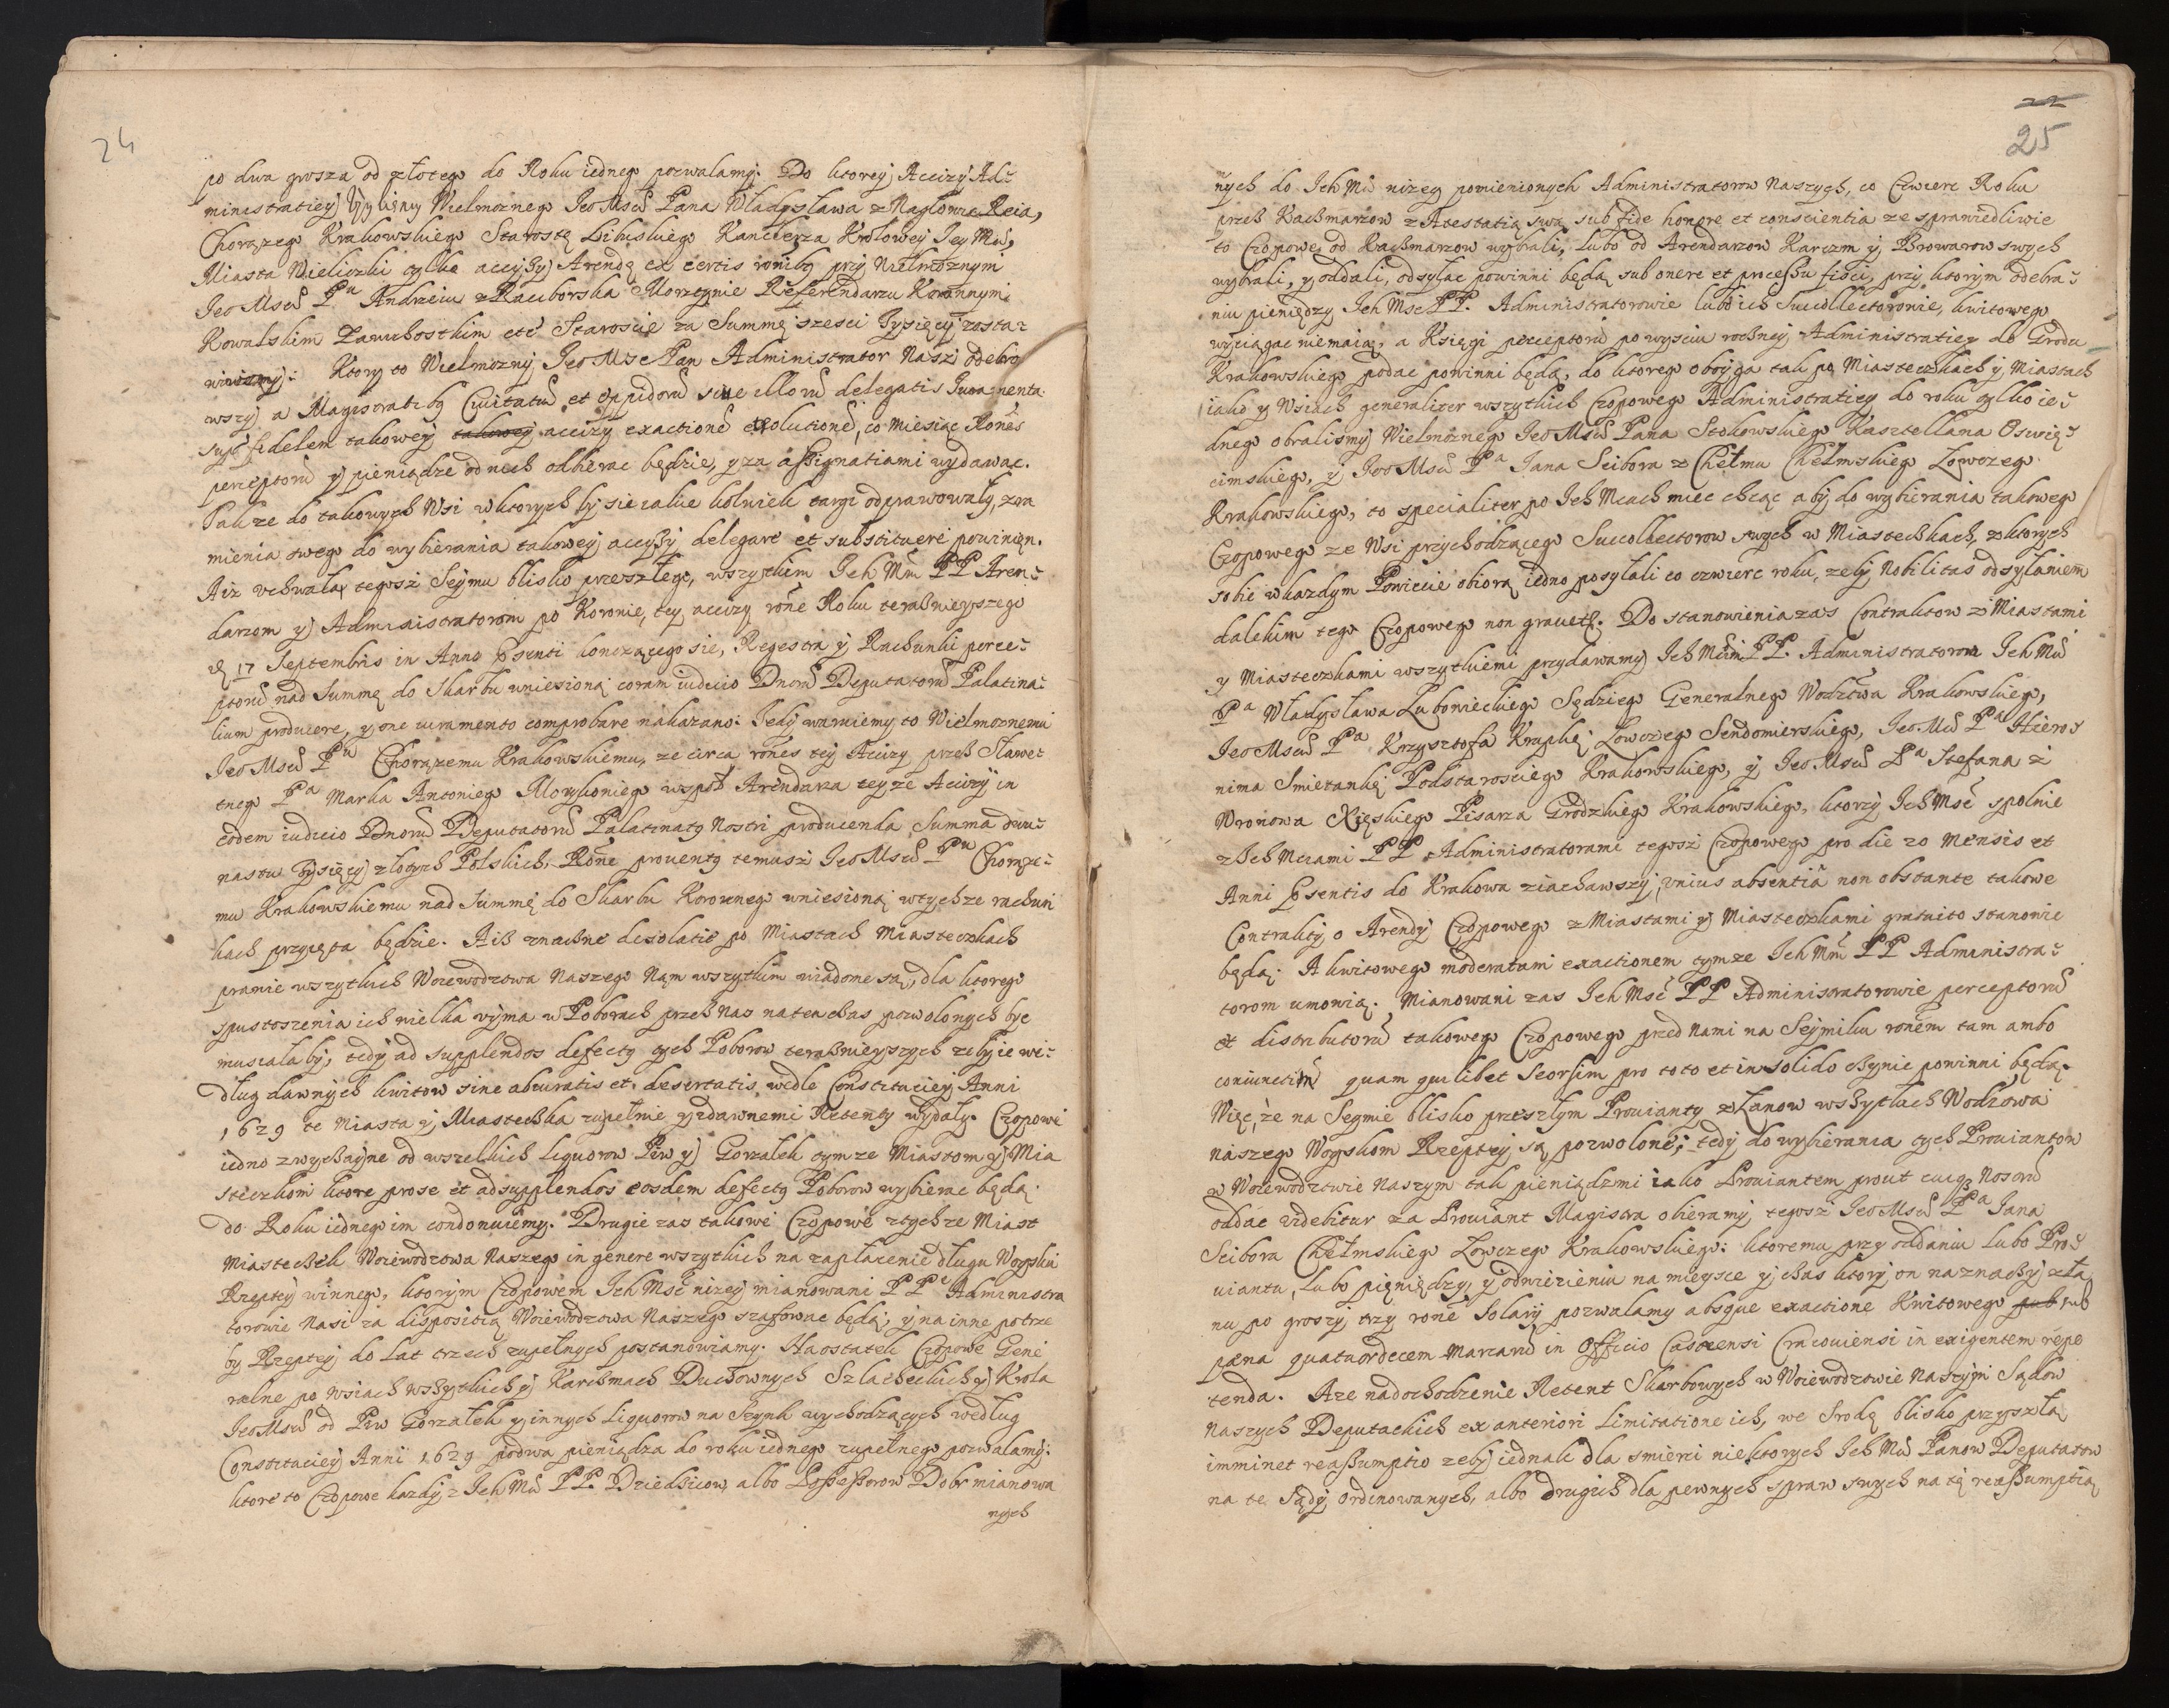 24
po dwa grosza od złotego do Roku iednego pozwalamy. Do ktorey Accizy Ad-
ministratiey Wielmoznego Jeo Mści Pana Władysława z Nagłowic Reia,
Chorązego Krakowskiego Starostę Libuskiego Kanclerza Krolowey Jey Mści,
Miasta Wieliczki tylko accyzy Arendę ex certis rońibg przy Wielmoznym
Jeo Mści Pu Andrzeiu z Raciborska Morstynie Referendarzu Koronnym,
Kowalskim Zawichostkim etć Staroscie za Summę szesci Tysięcy zosta-
wuiemy: Ktory to Wielmozny Jeo Msc Pan Administrator Nasz odebra
wszy a Magistratibg Ciuitatũ et oppidorũ siue illorũ delegatis Juramenta
sup fidelem takowey takowey accizy exactione euolutione, co Miesiąc Rones
perceptorũ y pieniądze od nich odbierac będzie, y za assignatiami wydawac.
Takze do takowych Wsi w ktorych by się iakie kolwiek targi odprawowały, z ra
mienia swego do wybierania takowey accyzy delegare et substituere powinien.
Aiz vchwałą tegosz Seymu blisko przeszłego, wszytkim Ich Mm PP Aren-
darzom y Administratorom po Koronie, tey accizy rone Roku teraznieyszego
d 17 Septembris in Anno Psenti konczącego się, Regestra y Rachunki perce-
ptorũ nad Summę do Skarbu wniesioną coram iudicio Dnorũ Deputatorũ Palatina-
lium producere, y one iuramento comprobare nakazano: Tedy waruiemy to Wielmoznemu
Jeo Mści Pu Chorązemu Krakowskiemu, ze circa rones tey Accizy przez Sławe-
tnego Pa Marka Antoniego Morykoniego wspoł Arendarza teyze Accizy in
eodem iudicio Dnorũ Deputatorũ Palatinatg Nostri producenda, Summa dwu-
nastu Tysięcy złotych Polskich, Rone prouentg temusz Jeo Mści Pu Chorąze-
mu Krakowskiemu nad Summę do Skarbu Koronnego wniesioną w tychze rachun
kach przyięta będzie. Aisz znaczne desolatie po Miastach Miasteczkach
prawie wszytkich Woiewodztwa Naszego Nam wszytkim wiadome są, dla ktorego
spustoszenia ich wielka vyma w Poborach przez Nas na ten czas pozwolonych byc
musiałaby, tedy ad supplendos defectg tych Poborow teraznieyszych zeby ie we-
dług dawnych kwitow sine abiuratis et desertatis wedle Constitutiey Anni
1629 te Miasta y Miasteczka zupełnie y z dawnemi Retenty wydały. Czopowe
iedno zwyczayne od wszelkich liquorow Piw y Gorzałek tymze Miastom y Mia
steczkom ktore pro se et ad supplendos eosdem defectg Poborow wybierac będą.
do Roku iednego im condonuiemy. Drugie zas takowe Czopowe z tychze Miast
Miasteczek Woiewodztwa Naszego in genere wszytkich na zapłacenie długu Woysku
Rzeptey winnego, ktorym Czopowem Ich Msc nizey mianowani PP Administra
torowie Nasi za dispositią Woiewodztwa Naszego szafowac będą, y na inne potrze
by Rzeptey do Lat trzech zupełnych postanowiamy. Na ostatek Czopowe Gene
ralne po Wsiach wszytkich y Karczmach Duchownych Szlacheckich y Krola
Jeo Mści od Piw Gorzałek y innych Liquorow na Szynk wychodzących według
Constitutiey Anni 1629 po dwa pieniądza do roku iednego zupełnego pozwalamy:
ktore to Czopowe kazdy z Ich Mści PP. Dziedzicow, albo Possessorow Dobr mianowa
nych
22
25
nych do Ich Mści nizey pomienionych Administratorow Naszych, co Czwierc Roku
przez Kaczmarzow z Atestatią swą sub fide honore et conscientia ze sprawiedliwie
to Czopowe od Kaczmarzow wybrali, lubo od Arendarzow Karczm y Browarow swych
wybrali, y oddali, odsyłac powinni będą sub onere et processu fisci, przy ktorym odebra-
niu pieniędzy Ich Msc PP. Administratorowie lubo ich Succollectorowie, kwitowego
wyciągac niemaią, a Księgi perceptorũ po wysciu roczney Administratiey do Grodu
Krakowskiego podac powinni będą, do ktorego oboyga tak po Miasteczkach y Miastach
iako y Wsiach generaliter wszytkich Czopowego Administratiey do roku tylko ie-
dnego obralismy Wielmoznego Jeo Mści Pana Stokowskiego Kasztellana Oswię-
cimskiego, y Jeo Mści Pa Jana Scibora z Chełmu Chełmskiego Łowczego
Krakowskiego, to specialiter po Ich Mciach miec chcąc aby do wybierania takowego
Czopowego ze Wsi przychodzącego Succollectorow swych w Miasteczkach, z ktorych
sobie w kazdym Powiecie obiorą iedno posyłali co czwierc roku, zeby Nobilitas odsyłaniem
dalekim tego Czopowego non grauetr. Do stanowienia zas Contraktow z Miastami
y Miasteczkami wszytkiemi przydawamy Ich Mciom PP. Administratorom Ich Mści
Pa Władysława Lubowieckiego Sędziego Generalnego Wodztwa Krakowskiego,
Jeo Mści Pa Krzysztofa Krupkę Łowczego Sendomierskiego, Jeo Mści Pa Hiero-
nima Smietankę Podstarosciego Krakowskiego, y Jeo Mści Pa Stefana z
Wronowa Xięskiego Pisarza Grodzkiego Krakowskiego, ktorzy Ich Msc spolnie
z Ich Mciami PP Administratorami tegosz Czopowego pro die 20 Mensis et
Anni Psentis do Krakowa ziachawszy, vnius absentia non obstante takowe
Contrakty o Arendy Czopowego z Miastami y Miasteczkami gratuito stanowic
będą. A kwitowego moderatam exactionem tymze Ich Mm PP Administra-
torom umowią. Mianowani zas Ich Msc PP Administratorowie perceptorũ
et distributorũ takowego Czopowego przed Nami na Seymiku ronem tam ambo
coniunctim quam quilibet seorsim pro toto et in solido czynic powinni będą.
Więc, ze na Seymie blisko przeszłym Prouianty z Łanow wszytkich Wodztwa
naszego Woyskom Rzeptey są pozwolone; tedy do wybierania tych Prouiantow
w Woiewodztwie Naszym tak pieniądzmi iako Prouiantem prout cuiqz Nosorũ
oddac videbitur za Prouiant Magistra obieramy tegosz Jeo Mści Pa Jana
Scibora Chełmskiego Łowczego Krakowskiego: ktoremu przy oddaniu lubo Pro-
uiantu, lubo pieniędzy, y odwiezieniu na mieysce y czas ktory on naznaczy z Ła
nu po groszy trzy rone Solary pozwalamy absque exactione Kwitowego sub sub
pæna quatuordecem Marcarũ in Officio Castrensi Cracouiensi in exigentem repe
tenda. A ze na dochodzenie Retent Skarbowych w Woiewodztwie Naszym Sądow
Naszych Deputackich ex anteriori Limitatione ich, we Srodę blisko przyszłą
imminet reassumptio zeby iednak dla smierci niektorych Ich Mści Panow Deputatow
na te Sądy ordinowanych, albo drugich dla pewnych spraw swych na tę reassumptią